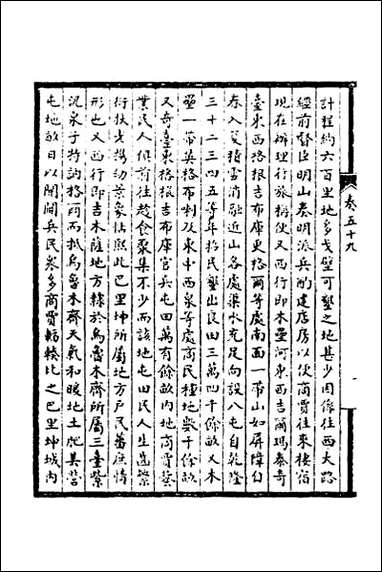 計程約六百里地多戈壁可墾之地甚少因係往西大路
經前督臣明山奏明派兵酌建店房以便商賈往來棲宿
現在辦理行旅稱便又西行即木壘河東西吉爾瑪泰奇
臺東西格根吉布庫更格爾等處南面一帶山如屏障自
春入夏積雪消融近山各處渠水充足向設八屯自乾隆
三十二三四五等年招民墾出良田三萬四千餘畝又木
壘一帶英格布喇及東中西泉等處商民種地數千餘畝
又奇臺東格根吉布庫官兵屯田萬有餘畝內地商賈藝
業民人俱前往趁食聚集不少而該地屯田民人生齒繁
衍扶老攜幼景象恬熙此巴里坤所屬地方戶民蕃庶情
形也又西行即吉木薩地方隸於烏魯木齊所屬三臺紫
泥泉子特訥格爾而抵烏魯木齊天氣和暖地土肥美營
屯地畝日以開闢兵民眾多商賈輻輳比之巴里坤城內
卷五十九
一